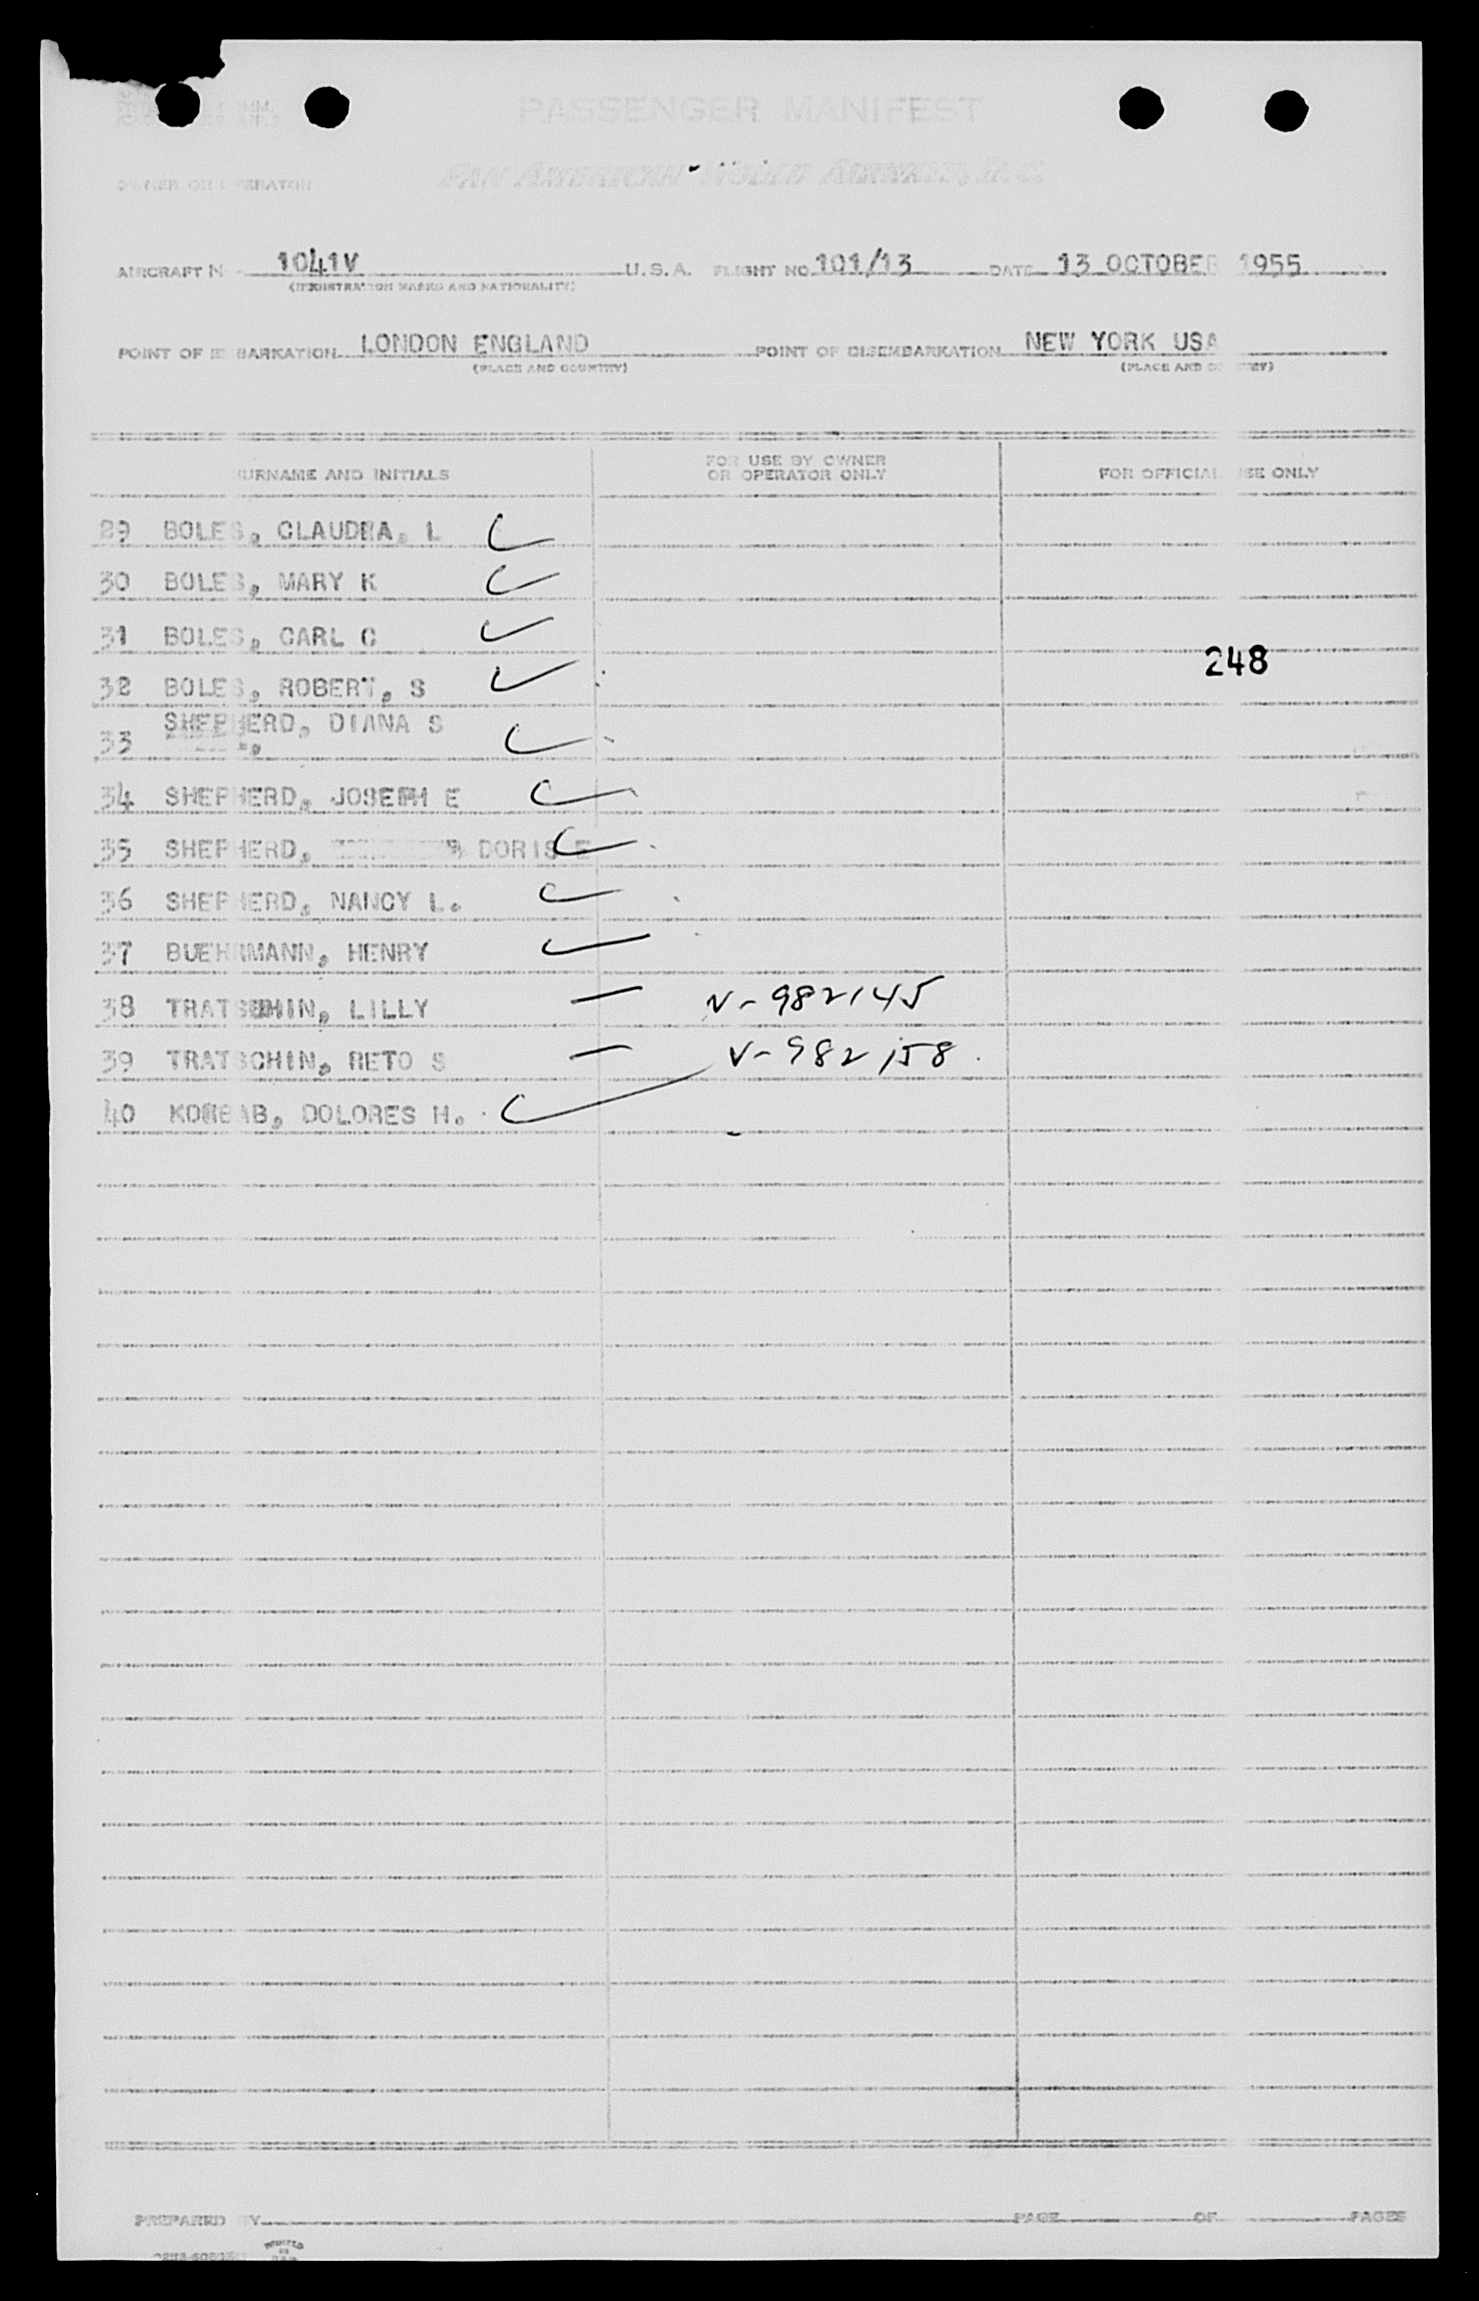 PASSENGER MANIFEST
OWNER OR OPERATOR PAN AMERICAN WORLD AIRWAYS, INC.
AIRCRAFT N 1041V U.S.A. FLIGHT NO. 101/13 DATE 13 OCTOBER 1955
(REGISTRATION MARKS AND NATIONALITY)
POINT OF EMBARKATION LONDON ENGLAND POINT OF DISEMBARKATION NEW YORK USA
(PLACE AND COUNTRY) (PLACE AND COUNTRY)
SURNAME AND INITIALS FOR USE BY OWNER OR OPERATOR ONLY FOR OFFICIAL USE ONLY
29 BOLES, CLAUDIA, L
30 BOLES, MARY K
31 BOLES, CARL C
248
32 BOLES, ROBERT, S
SHEPHERD, DIANA S
33
34 SHEPHERD, JOSEPH E
35 SHEPHERD, DORIS E
36 SHEPHERD, NANCY L.
37 BUEHRMANN, HENRY
38 TRATSCHIN, LILLY V-982145
39 TRATSCHIN, RETO S V-982158
40 DOLORES H.
PREPARED BY PAGE OF PAGES